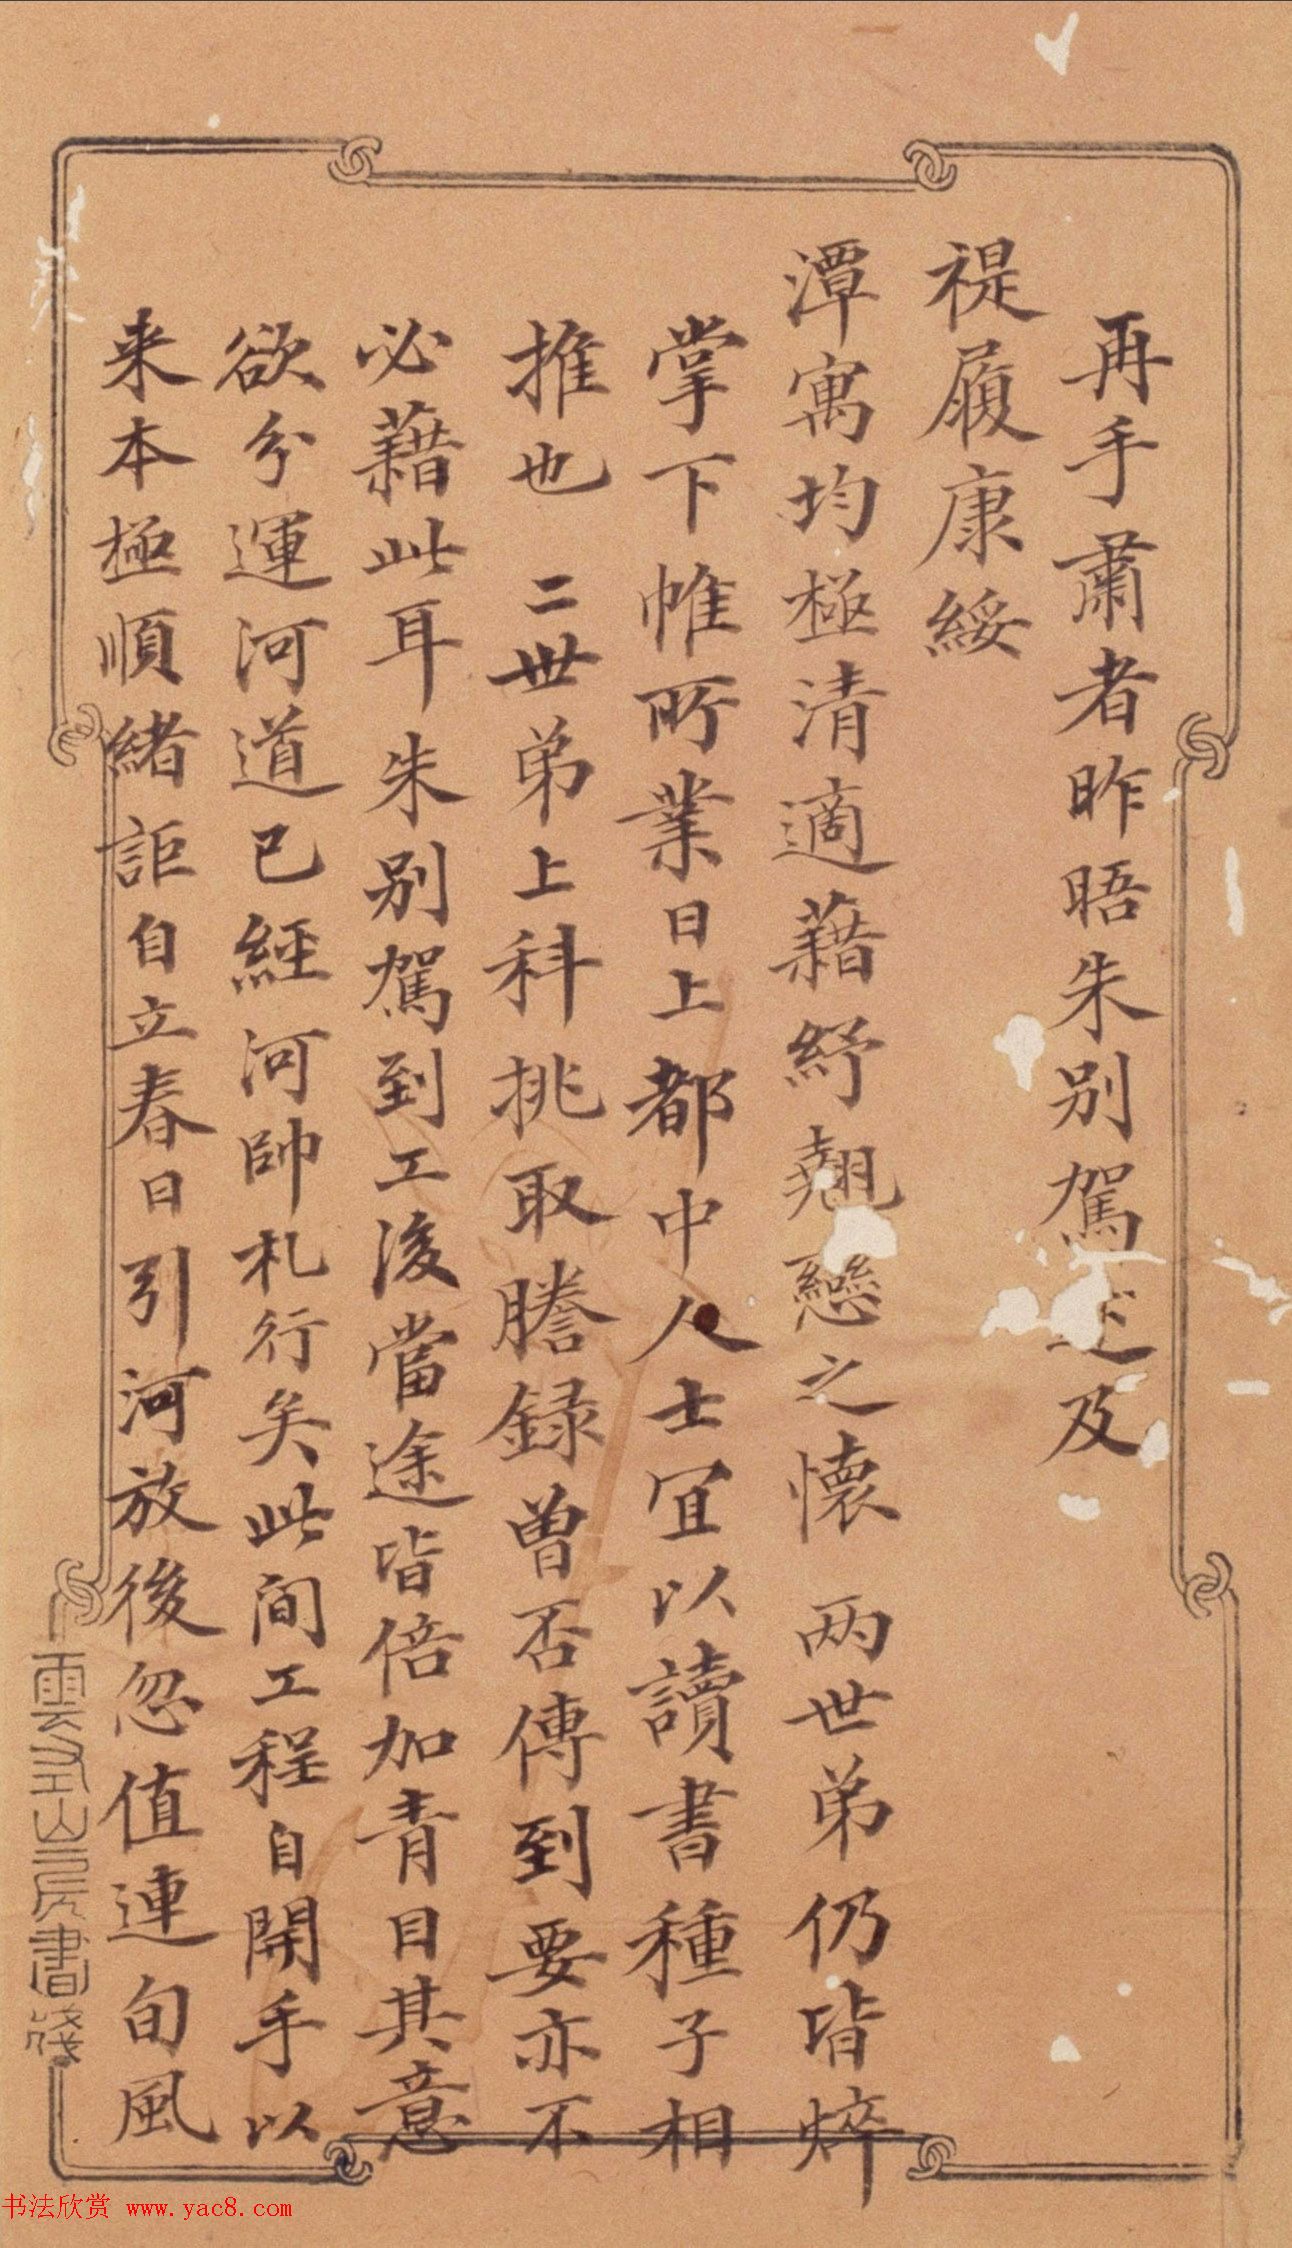 再手肅者昨晤朱別駕述及
禔履康綏
潭寓均極清適藉紓翹戀之懷 两世弟仍皆焠
掌下帷所業日上都中人士冝以讀書種子相
推也 二世弟上科挑取謄録曾否傳到要亦不
必藉此耳朱別駕到工後當途皆倍加青目其意
欲分運河道已經河帥札行矣此间工程自開手以
来本極順緒詎自立春日引河放後忽值連旬風
雲左山房書箋
书法欣赏 www.yac8.com